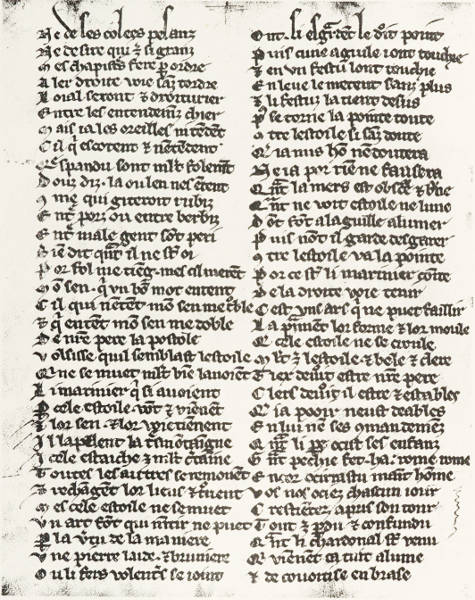 Ne de les colers pesanz
Ne desire qui z si granz
M es chapistes fere por ordre
A ler droite voie sanz tordre
L oial seront & droiturier
E ntre les entendemenz
M ais ia les oreilles
C il qi escotent & nentendent
espandu sont mlt folement
D ou diz la ou len nes entent
giteroit rubiz
E porz ou entre berbiz
E male gent sont peri
B ien dit il ne
P or fol me
O sen q un bon mot entent
C il qui nentent mon sen me
& q entent mon sen me doble
D e nre pere la postole
V olsisse quil semblast lestoile
Q ne se muet mlt bien la voient
L i marinier q si avoient
P cele estoile vont & vienent
& lor sen & lor voie tienent
I l lapelent la
I cele estache & mlt certaine
T outes les autres se removent
& rechangent lor lieus & tuent
M es cele estoile ne se muet
V n art font qui mentir ne puet
P la vtu de la maniere
V ne pierre laide & bruniere
O u li fers volentrs se ioint
O nt si esgardent le droit point
P uis cune aguile i ont touchie
& en un festu lont touchie
E n leve le metent sanz plus
& li festuz la tient desus
P se torne la pointe toute
9tre lestoile si sanz doute
Q ia mis hom nen doutera
N e ia por rien ne fausera
Q ant la mers est obscure & brune
Q ant ne voit estoile ne lune
D ont font a laguille alumer
P uis nont il garde desgarer
9tre lestoile va la pointe
P or ce sunt li marinier cointe
D e la droite voie tenir
C est uns ars q ne puet faillir
L a prenent lor forme & lor moule
Q cele estoile ne se croule
M lt est lestoile & bele & clere
T iex devroit estre nre pere
C lers devroit il estre & estables
Q ia pooir neust deables
E n lui ne ses 9mandemenz
Q ant li pere ocist ses enfanz
G rant pechie fet ha rome rome
E ncor ociras tu maint home
V os nos ociez chascun ior
C restientez a pris son tor
T out est perdu & confundu
Q ant li chardonal sont venu
Q vienent ca tuit alume
& de covoitise enbrase